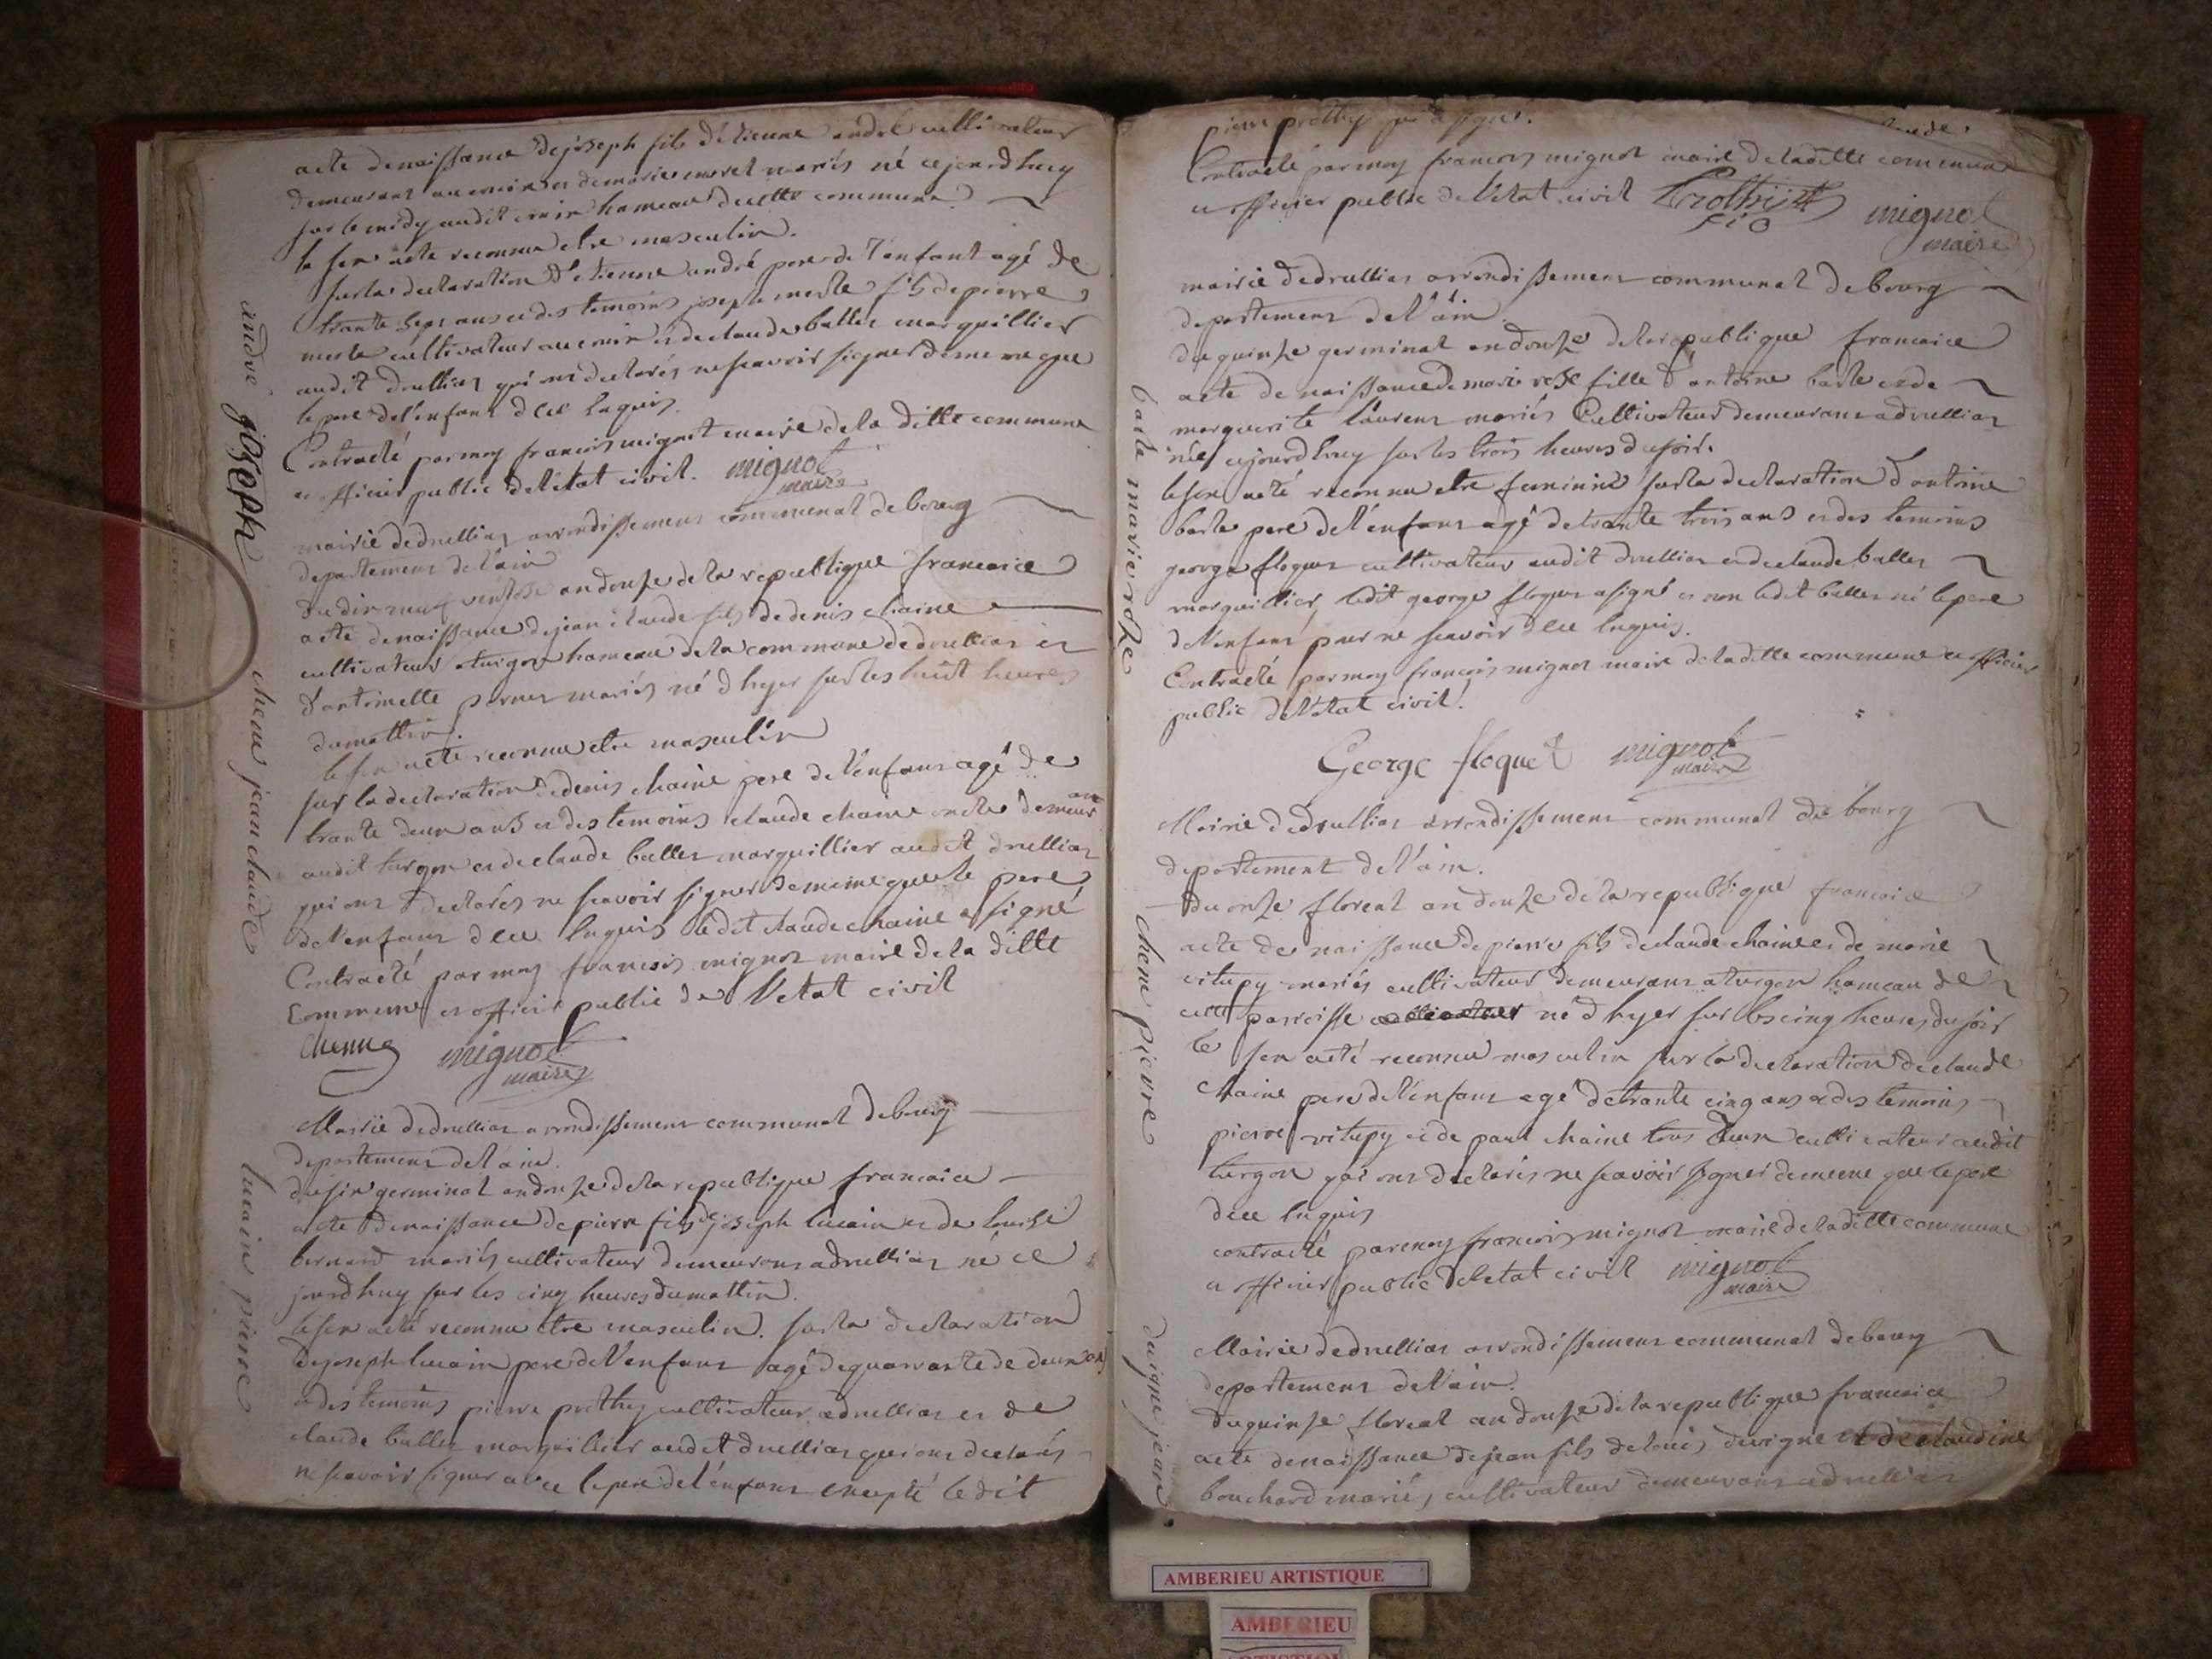 acte de naissance de joseph fils d'etienne andré cultivateur
demeurant au et de marie mariés né cejourdhuy
sur le midy audit hameau de cette commune
le sex acté reconnu etre masculin.
sur la declaration d'etienne andré pere de l'enfant agé de
trante sept ans et des temoins joseph merle fils de pierre
merle cultivateur au et de claude ballet marguillier
audit drullias qui ont declarés ne scavoir signer de meme que
le pere de l'enfant d ece enquis.
Contracté par moy francois mignot maire de la ditte commune
et officier public de l'état civil. mignot
maire
mairie de drullias arrondissement communal de bourg
departement de l'ain
du dix neuf ventose an douze de la republique francaice
acte de naissance de jean claude fils de denis chaine
cultivateur a turgon hameau de la commune de drullias et
d'antoinette mariés né d hyer sur les huit heures
du mattin.
le sex acté reconnu etre masculin
sur la declaration de denis chaine pere de l'enfant agé de
trante deux ans et des temoins claude chaine oncle demeurant
audit turgon et de claude ballet marguillier audit drullias
qui ont declarés ne scavoir signer de meme que le pere
de l'enfant d ece enquis ledit claude chaine a signé
Contracté par moy francois mignot maire de la ditte
Commune et officier public de l'etat civil
chenne mignot
maire
Mairie de drullias arrondissement communal de bourg
departement de l'ain.
du six germinal an douze de la republique francaice
acte de naissance de pierre fils de joseph lucain et de louise
bernard mariés cultivateur demeurant a drullias né ce
jourdhuy sur les cinq heures du mattin.
le sex acté reconnu etre masculin. sur la declaration
de joseph lucain pere de l'enfant agé de quarrante de deux ans
et des temoins pierre prothy cultivateur a drullias et de
claude ballet marguillier audit drullias qui ont declarés
ne scavoir signer avec le pere de l'enfant excepté le dit
andré joseph
chene jean claude
lucain pierre
pierre prothy qui a signé.
Contracté par moy francois mignot maire de la ditte commune
et officier public de l'etat civil mignot
maire
mairie de drullias arrondissement communal de bourg
departement de l'ain
du quinze germinal an douze de la republique francaice
acte de naissance de marie rose fille d'antoine barle et de
marguerite laurent mariés Cultivateur demeurant a drullias
née cejourdhuy sur les trois heures du soir.
le sex acté reconnu etre feminine sur la declaration d'antoine
barle pere de l'enfant agé de trante trois ans et des temoins
george floquet cultivateur audit drullias et de claude ballet
marguillier, ledit george floquet a signé et non ledit ballet ni le pere
de l'enfant pour ne scavoir d ece enquis.
Contracté par moy françois mignot maire de la ditte commune et officier
public de l'état civil.
George floquet mignot
maire
Mairie de drullias arrondissement communal de bourg
departement de l'ain.
du onze floreal an douze de la republique francaice
acte de naissance de pierre fils de claude chaine et de marie
vitupy mariés cultivateur demeurant a turgon hameau de
cette parroisse cultivateur né d hyer sur les cinq heures du soir
le sex acté reconnu masculin sur la declaration de claude
chaine pere de l'enfant agé de trante cinq ans et des temoins
pierre vitupy et de paul chaine tous deux cultivateur audit
turgon qui ont declarés ne scavoir signer de meme que le pere
d ece enquis
contracté par moy francois mignot maire de la ditte commune
et officier public de l'etat civil mignot
maire
Mairie de drullias arrondissement communal de bourg
departement de l'ain.
du quinze floreal an douze de la republique francaice
acte de naissance de jean fils de louis duvigne et de claudine
bouchard mariés cultivateur demeurant a drullias
barle marie roze
chene pierre
duvigne jean
AMBERIEU ARTISTIQUE
AMBERIEU
ARTISTIQUE